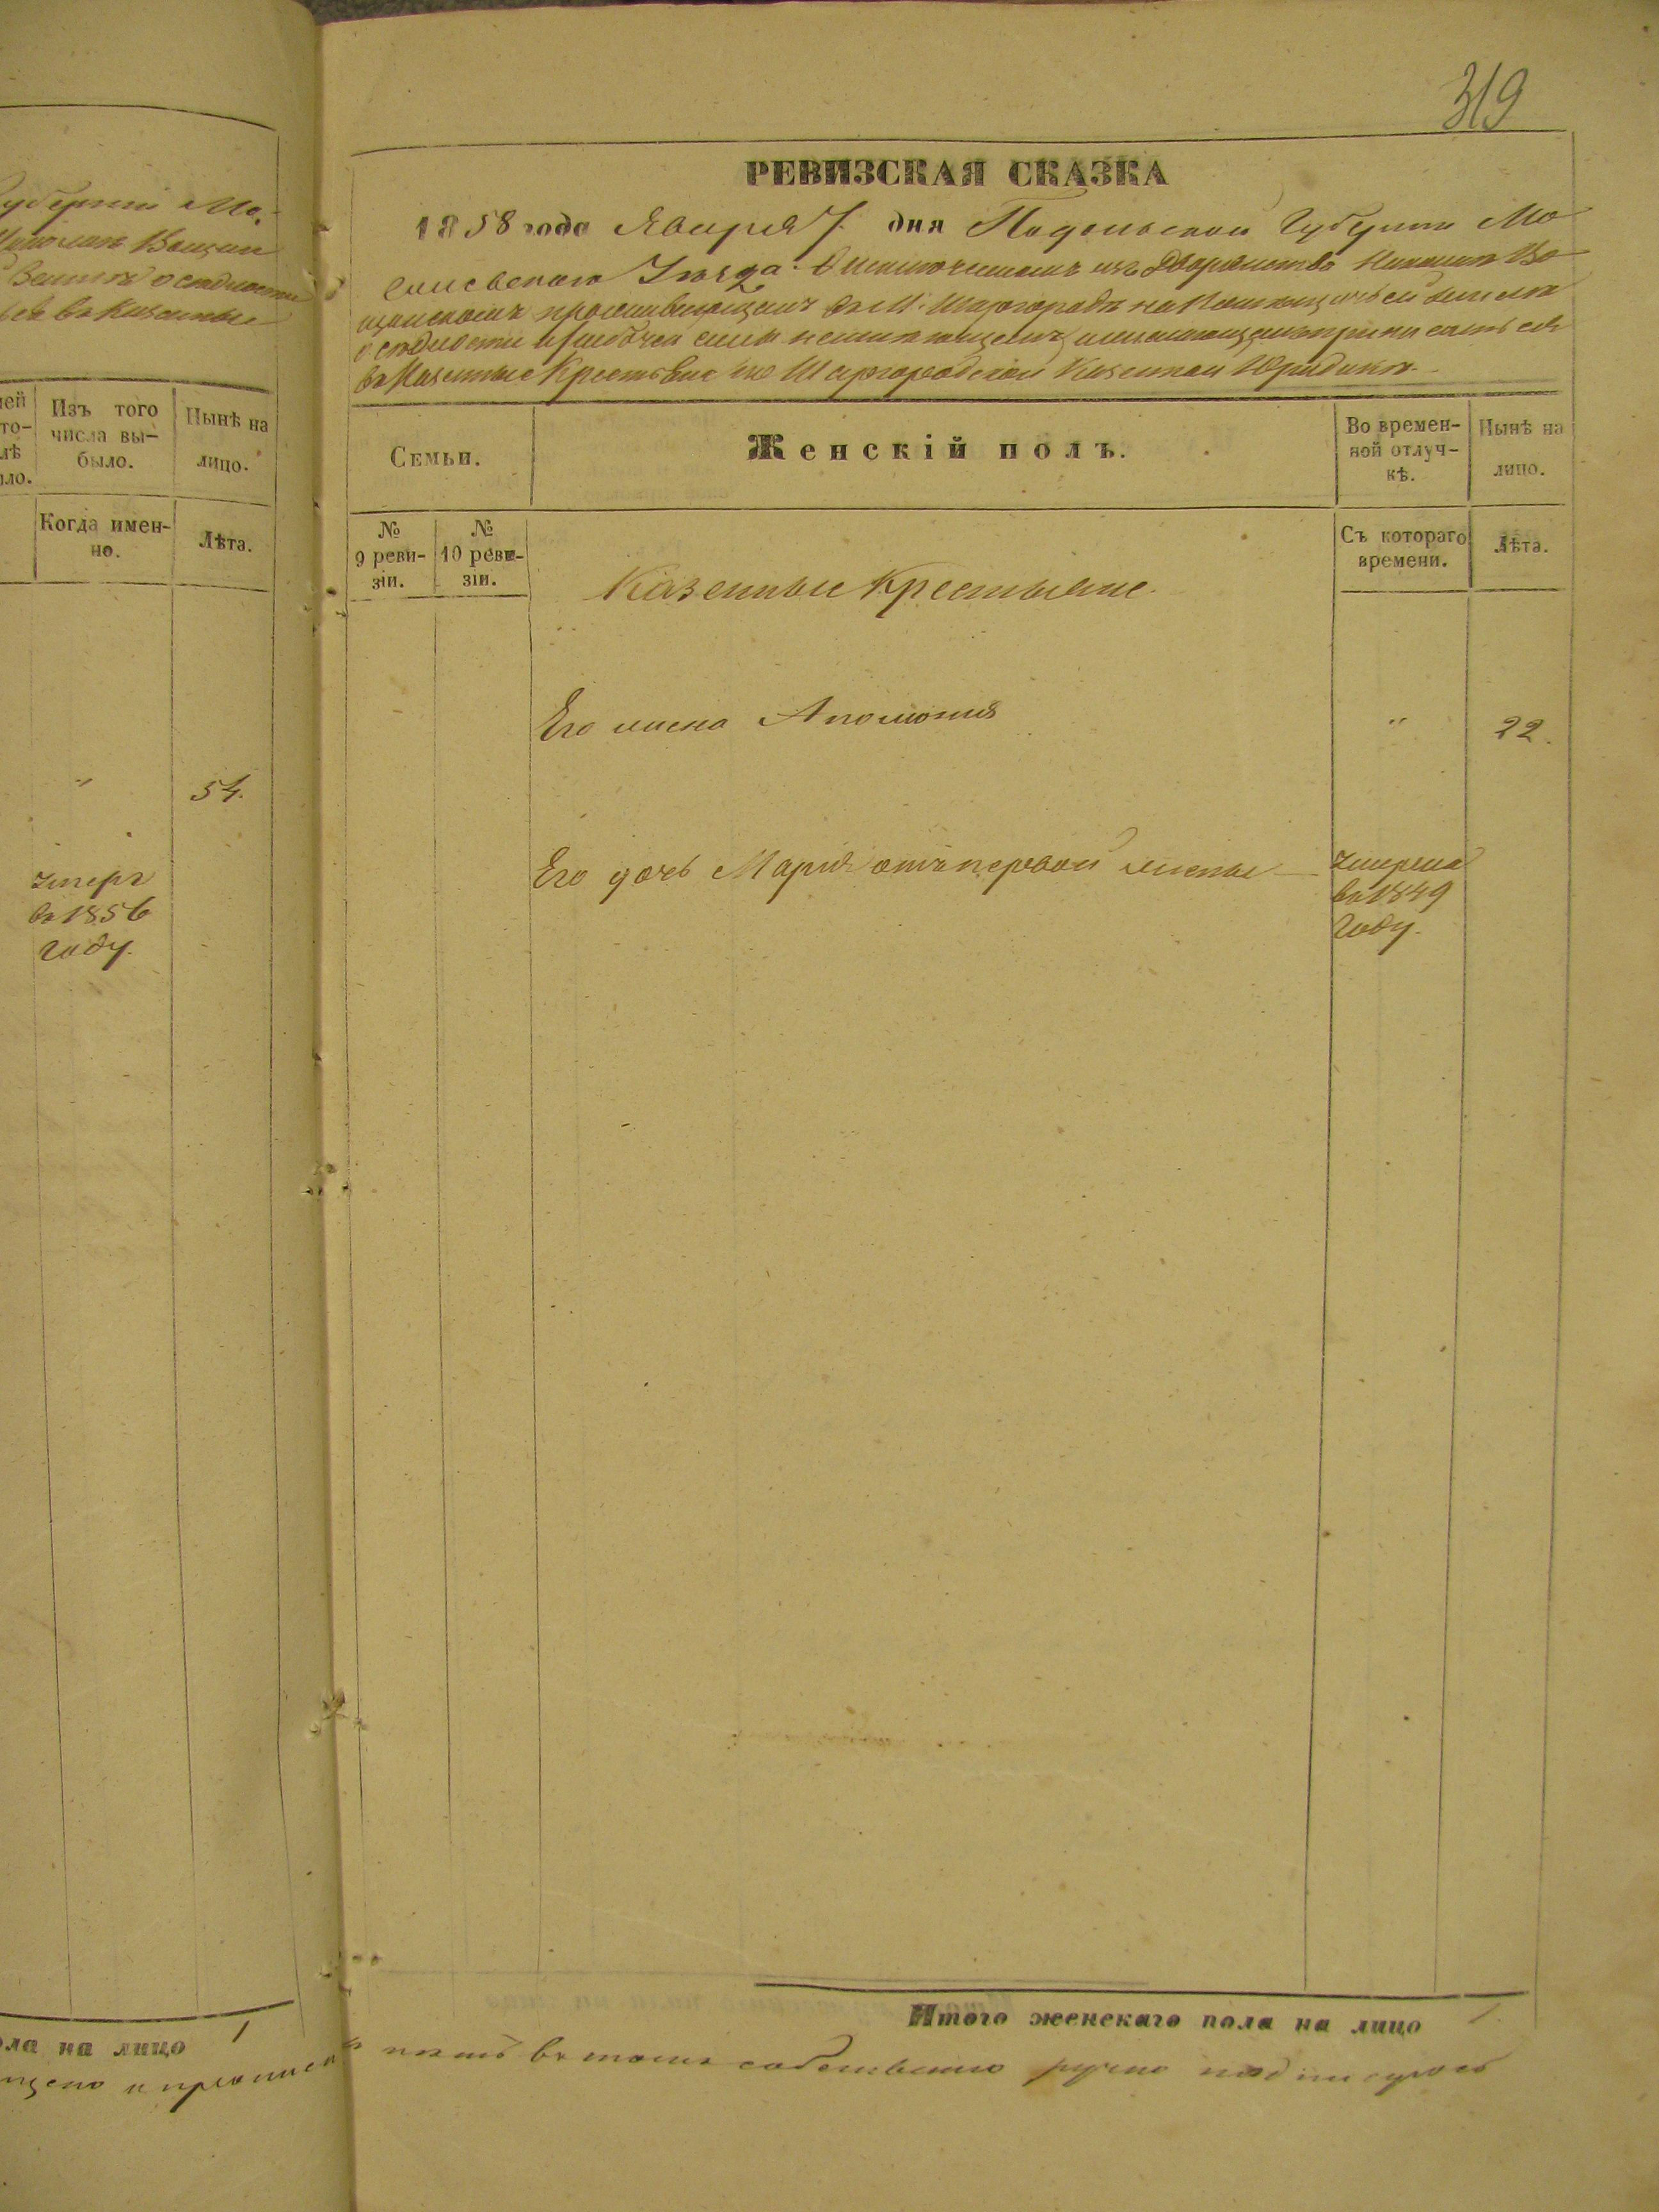 Губерніи Мо-
Николаѣ Вощин
о седлости
ся въ Казенные
Изъ того числа вы-
было.
Нынѣ на
лицо.
Когда имен-
но.
Лѣта.
"
54.
умеръ
въ 1856
году.
ола на лицо 1
319
РЕВИЗСКАЯ СКАЗКА
1858 года Января 7 дня Подольской Губерніи Мо
Уѣзда. О исключенномъ изъ Дворянства Во
щинскомъ проживающемъ въ М. Шаргородѣ на
осѣдлости и неимѣющемъ,
въ Казенные Крестьяне по Шаргородской Казенной Юридикѣ.
Семьи.
Женскій полъ.
Во времен-
ной отлуч-
кѣ.
Нынѣ на
лицо.
№
9 реви-
зіи.
№
10 реви-
зіи.
Съ котораго
времени.
Лѣта.
Казенные Крестьяне.
Его жена Аполонія " 22.
Его дочь Марія отъ первой жены — умерла
въ 1849
году.
Итого женскаго пола на лицо 1.
въ томъ собственно ручно подписуюсь